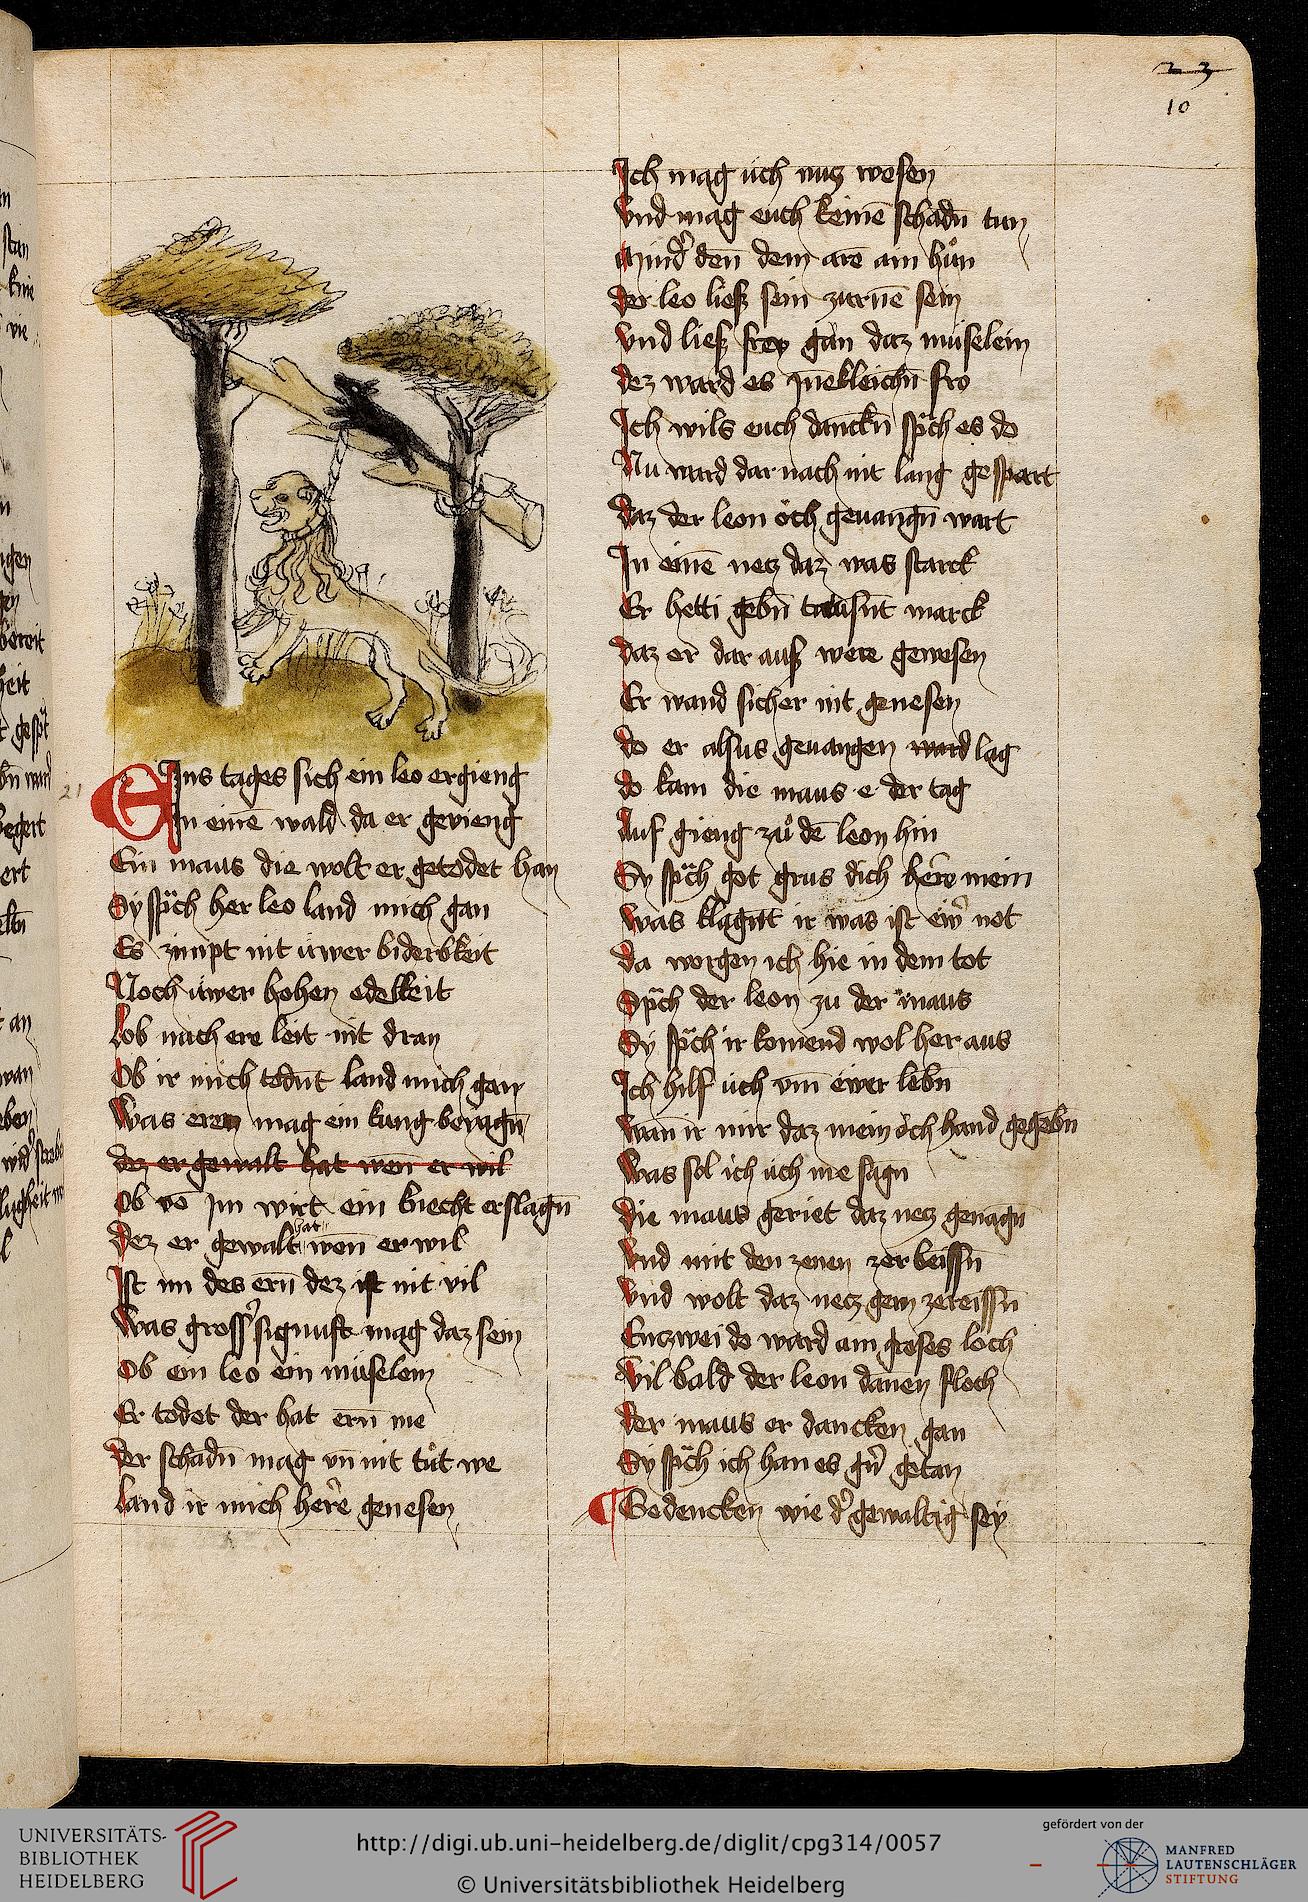 23
10
EIns tages sich ein leo ergieng
In einē wald da er gevieng
Ein maus die wolt er getödet han
Sy sp̈ch her leo land mich gan
Es zimpt nit üwer biderbkeit
Noch üwer hohen edelkeit
Lob noch ere leit nit dran
Ob ir mich tödnt land mich gan
Was eren mag ein küng beiagn̄
dez er gewalt hat wen̄ er wil
Ob vō im wirt ein knecht erslagn̄
Dez er gewalt hat wen̄ er wil
Ist im des ern̄ dez ist nit vil
Was gross᷎ signuft mag daz sein
Ob ein leo ein müselein
Er tödet der hat ern̄ me
Der schadn̄ mag vn̄ nit tůt we
Land ir mich her᷎e genesen
Ich mag üch nutz wesen
Vnd mag euch keinē schadn̄ tun
Mind᷎ den̄ dem arē ain hůn
Der leo liesz sein zurnē sein
Vnd liesz frey gan daz müselein
Dez ward es īnekleichn̄ fro
Ich wils euch danckn̄ sp̈ch es do
Nu ward dar nach nit lang gespart
Daz der leon öch geuangn̄ wart
In einē netz daz was starck
Er hetti gebn̄ tausn̄t marck
Daz er dar ausz were gewesen
Er wand sicher nit genesen
Do er alsus geuangen ward lag
Do kam die maus e der tag
Auf gieng zů dē leon hin
Sy sp̈ch got grus dich her᷎e mein
Was klagnt ir was ist ew᷎ not
Da worgen ich hie in dem tot
Sp̈ch der leon zu der maus
Sy sp̈ch ir komend wol her aus
Ich hilf üch vm̄ ewer lebn̄
Wan̄ ir mir daz mein öch hand gegebn̄
Was sol ich üch me sagn
Die maus geriet daz netz genagn̄
Vnd mit den zenen zerbeissn̄
Vnd wolt daz netz gern zereissn̄
Entzwei do ward ain groses loch
Vil bald der leon dānen floch
Der maus er dancken gan
Sy sp̈ch ich han es gn᷎ getan
Gedencken wie d᷎ gewaltig sey
21
UNIVERSITÄTS-
BIBLIOTHEK
HEIDELBERG
http://digi.ub.uni-heidelberg.de/diglit/cpg314/0057
© Universitätsbibliothek Heidelberg
gefördert von der
MANFRED
LAUTENSCHLÄGER
STIFTUNG